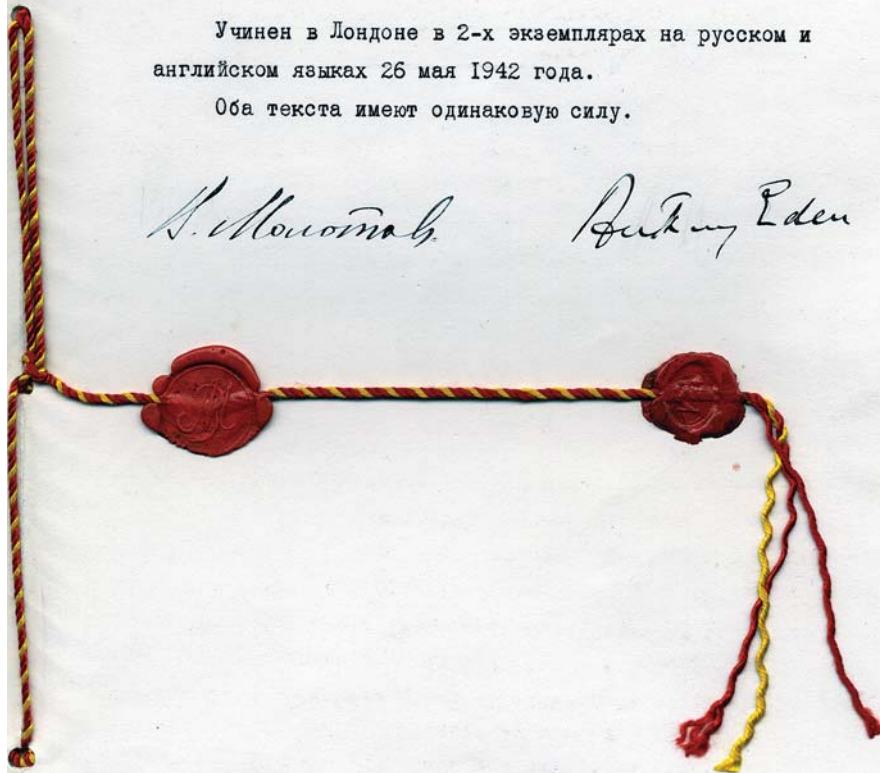 Учинен в Лондоне в 2-х экземплярах на русском и
английском языках 26 мая 1942 года.
Оба текста имеют одинаковую силу.
В. Молотов Anthony Eden